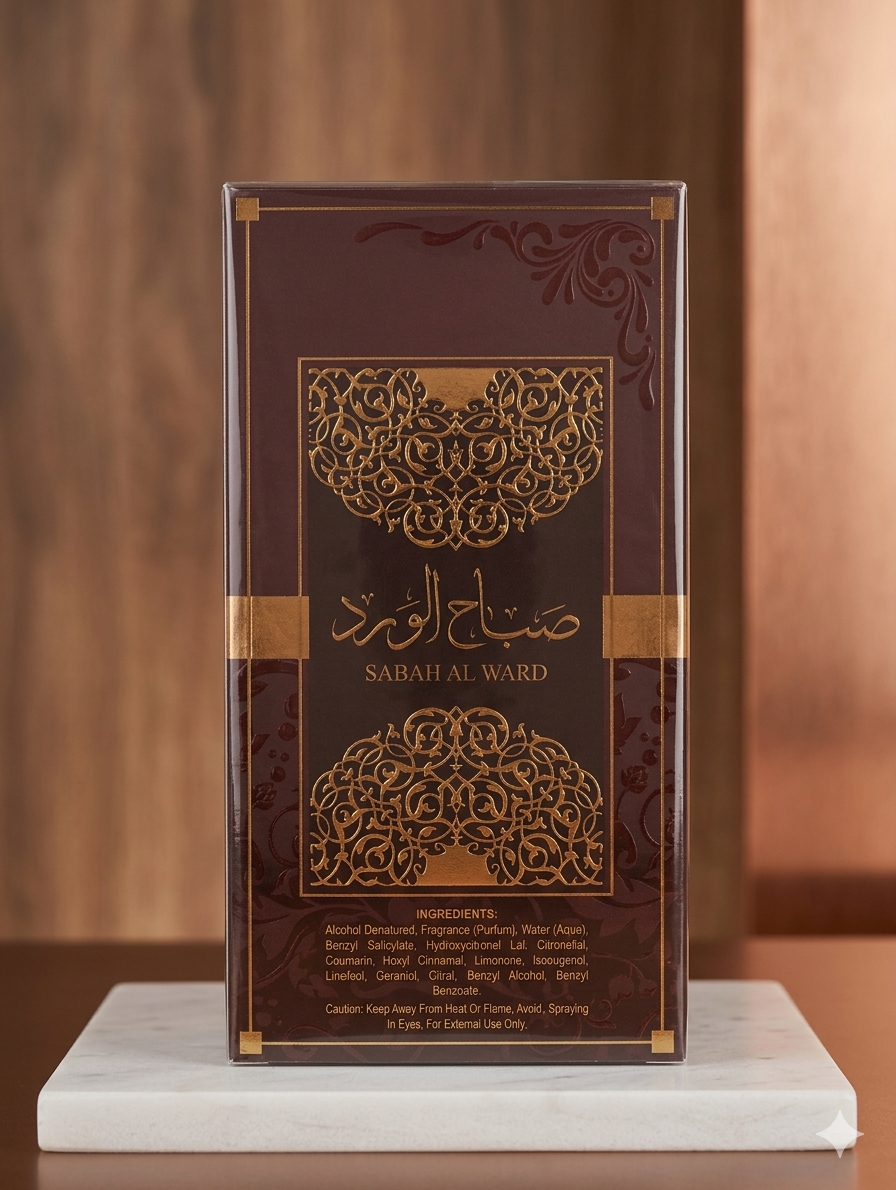 صباح الورد
SABAH AL WARD
INGREDIENTS:
Alcohol Denatured, Fragrance (Purfum), Water (Aque),
Benzyl Salicylate, Hydroxycitronel Lal. Citronefial,
Coumarin, Hoxyl Cinnamal, Limonone, Isoougenol,
Linefeol, Geraniol, Citral, Benzyl Alcohol, Benzyl
Benzoate.
Caution: Keep Away From Heat Or Flame, Avoid, Spraying
In Eyes, For External Use Only.